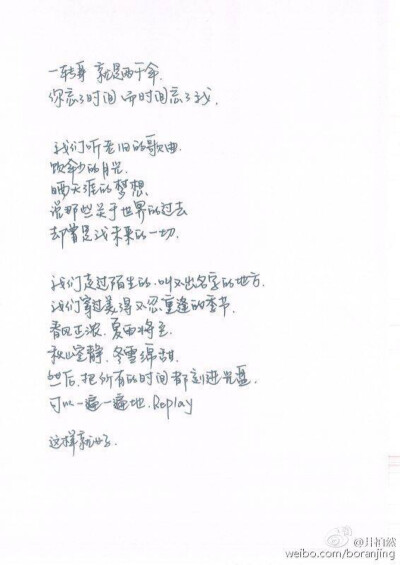 一转身 就是两千年.
你忘了时间 而时间忘了我.
我们听老旧的歌曲.
饮年少的月光.
晒天涯的梦想.
说那些关于世界的过去
却曾是我未来的一切.
我们走过陌生的,叫不出名字的地方.
我们穿过美得不忍重逢的季节.
春风正浓,夏雨将至.
秋山空静,冬雪绵甜.
然后,把所有的时间都刻进光盘.
可以一遍一遍地,Replay
这样就好.
@井柏然
weibo.com/boranjing